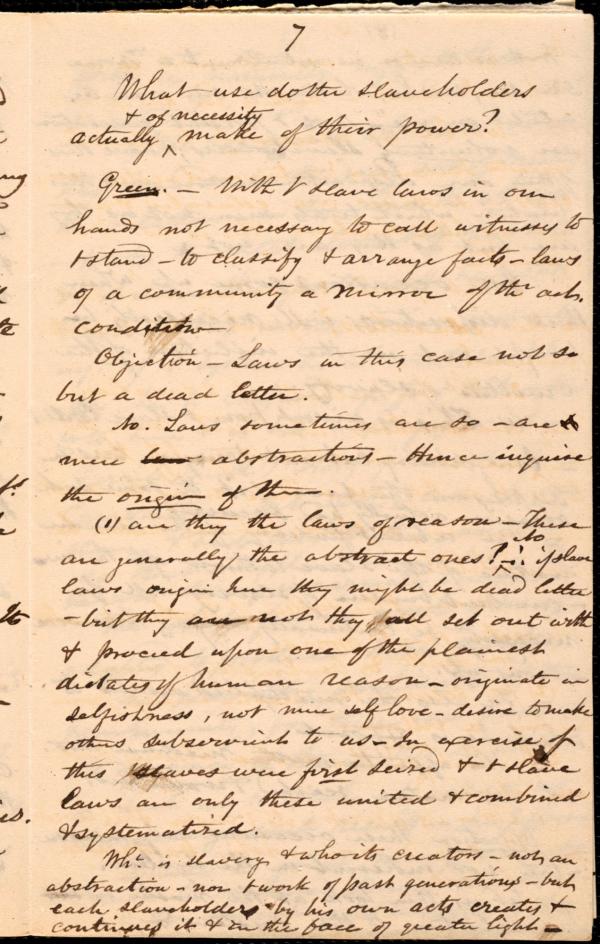 7
What use do the slaveholders
& of necessity
actually ^ make of their power?
Green. – With t slave laws in our
hands not necessary to call witnesses to
t stand – to classify & arrange facts – laws
of a community a mirror of thr acts.
condition
Objection – Laws in this case not so
but a dead letter.
No. Laws sometimes are so – are
mere law abstractions – Hence inquire
the origin of them.
(1) are they the laws of reason – These
are generally the abstract ones? No if slave
laws origin here they might be dead letter
– but they are not they all set out with
& proceed upon one of the plainest
dictates of human reason – originate in
selfishness, not mere self love – desire to make
others subservient to us – In exercise of
this slaves were first seized & t slave
laws are only these united & combined
& systematized.
Wht is slavery & who its creators – not an
abstraction – nor t work of past generations – but
each slaveholder by his own acts creates &
continues it & in the face of greater light –